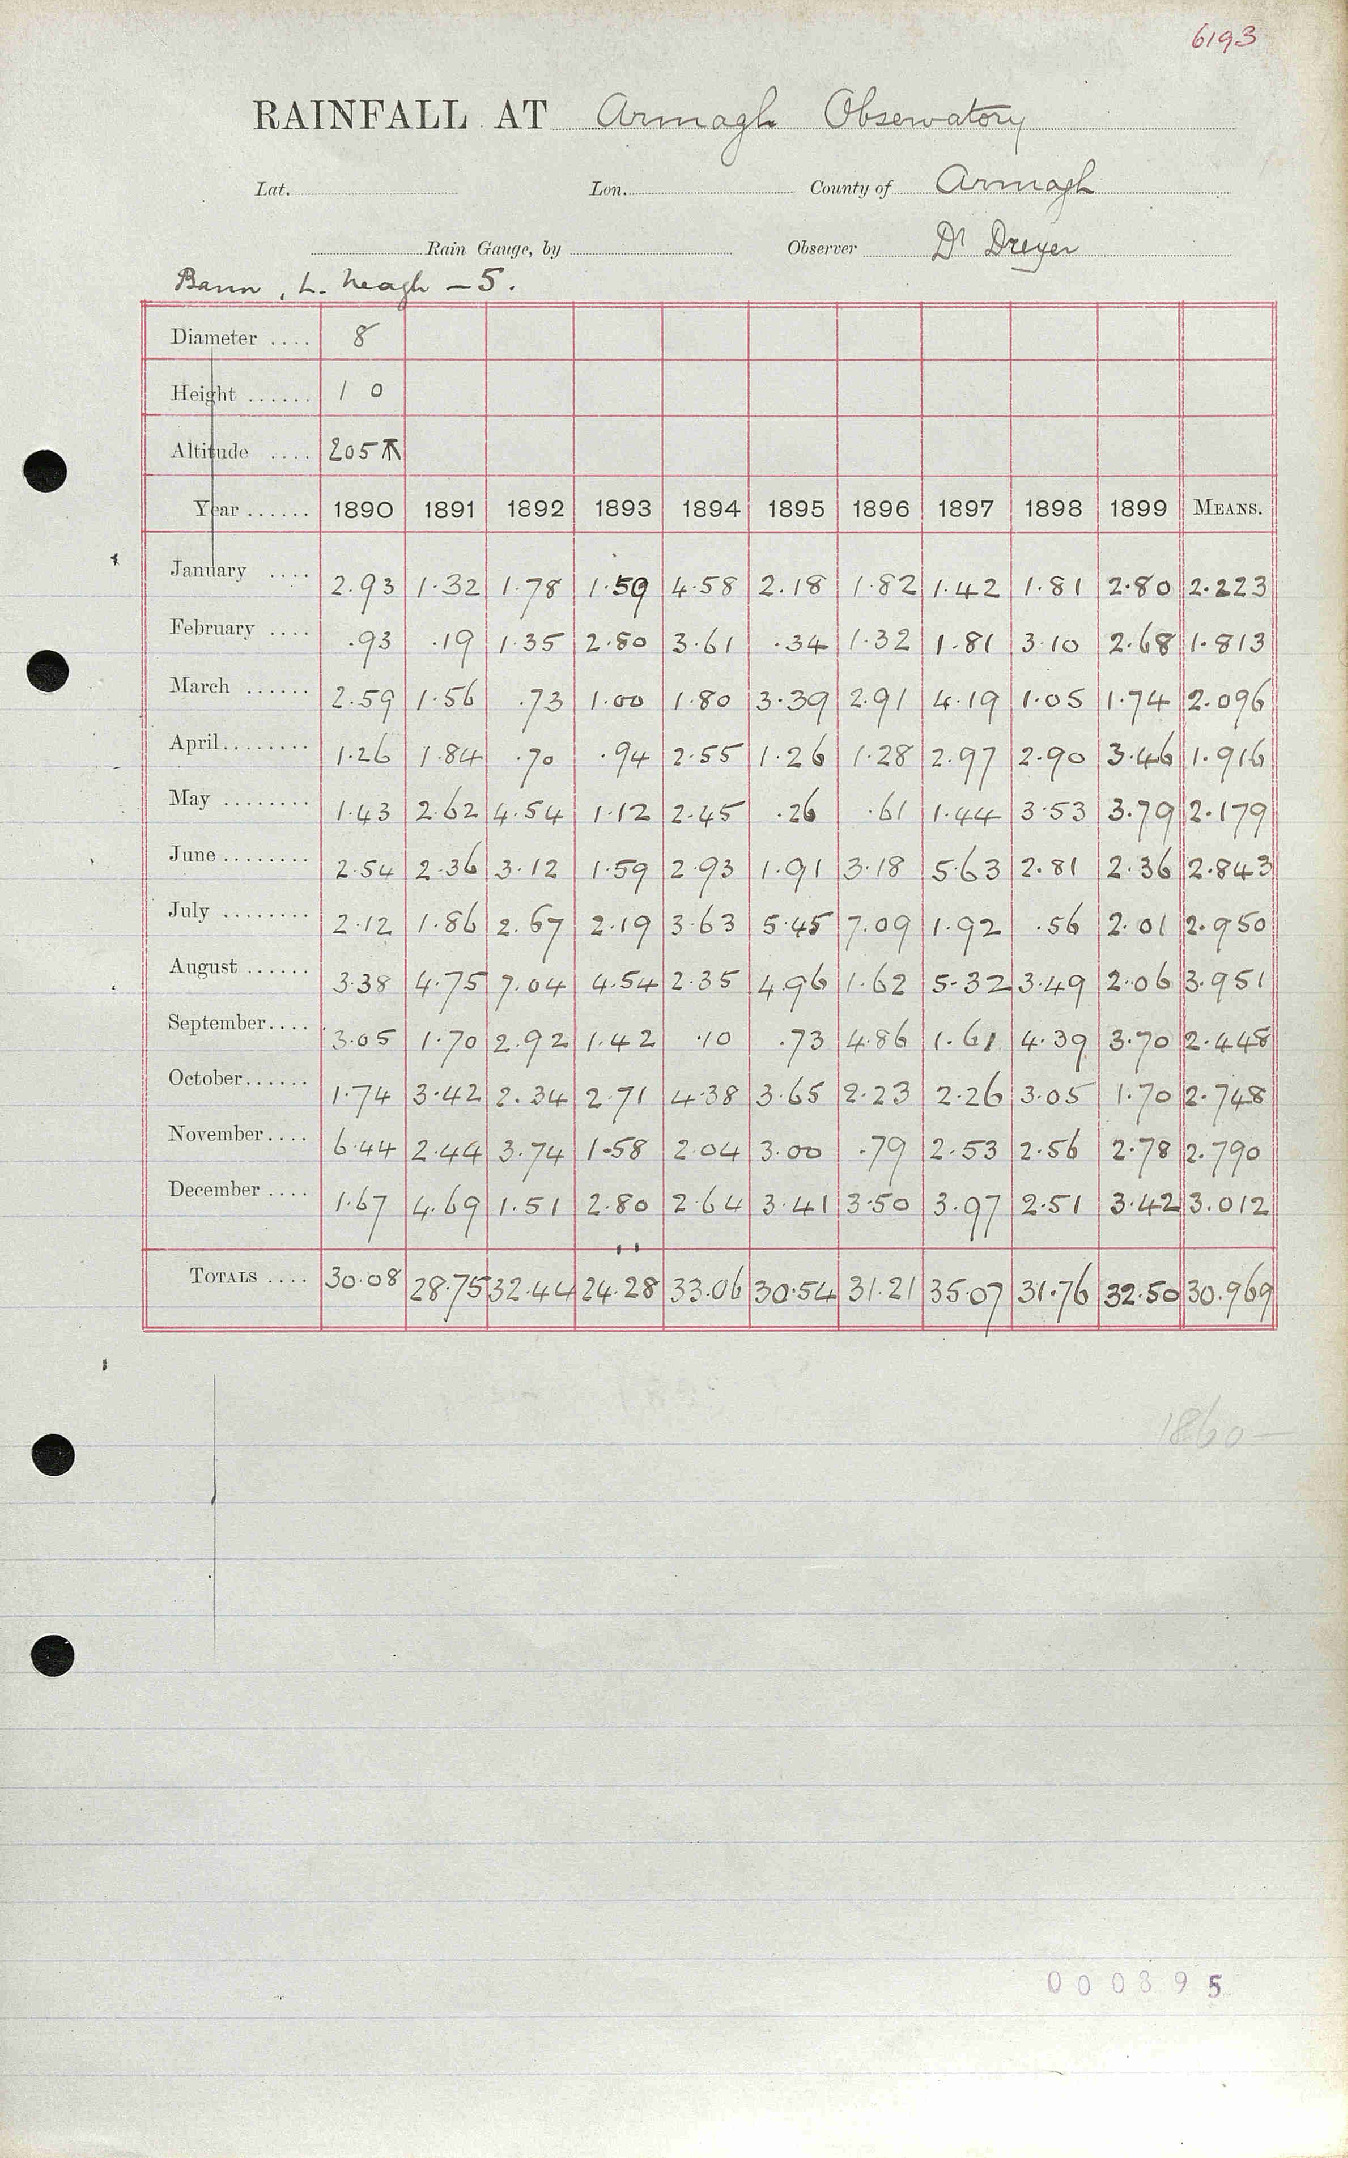 6193
RAINFALL AT Armagh Observatory
Lat. Lon. County of Armagh
Rain Gauge, by Observer Dr Dreyer
Bann, L. Neagh - 5.
Diameter .... 8
Height ...... 1 0
Altitude .... 205
Year ...... 1890 1891 1892 1893 1894 1895 1896 1897 1898 1899 MEANS.
January .... 2.93 1.32 1.78 1.59 4.58 2.18 1.82 1.42 1.81 2.80 2.223
February .... .93 .19 1.35 2.80 3.61 .34 1.32 1.81 3.10 2.68 1.813
March ...... 2.59 1.56 .73 1.00 1.80 3.39 2.91 4.19 1.05 1.74 2.096
April........ 1.26 1.84 .70 .94 2.55 1.26 1.28 2.97 2.90 3.46 1.916
May ........ 1.43 2.62 4.54 1.12 2.45 .26 .61 1.44 3.53 3.79 2.179
June ........ 2.54 2.36 3.12 1.59 2.93 1.91 3.18 5.63 2.81 2.36 2.843
July ........ 2.12 1.86 2.67 2.19 3.63 5.45 7.09 1.92 .56 2.01 2.950
August ...... 3.38 4.75 7.04 4.54 2.35 4.96 1.62 5.32 3.49 2.06 3.951
September.... 3.05 1.70 2.92 1.42 .10 .73 4.86 1.61 4.39 3.70 2.448
October...... 1.74 3.42 2.34 2.71 4.38 3.65 2.23 2.26 3.05 1.70 2.748
November.... 6.44 2.44 3.74 1.58 2.04 3.00 .79 2.53 2.56 2.78 2.790
December .... 1.67 4.69 1.51 2.80 2.64 3.41 3.50 3.97 2.51 3.42 3.012
TOTALS .... 30.08 28.75 32.44 24.28 33.06 30.54 31.21 35.07 31.76 32.50 30.969
1860 -
000395